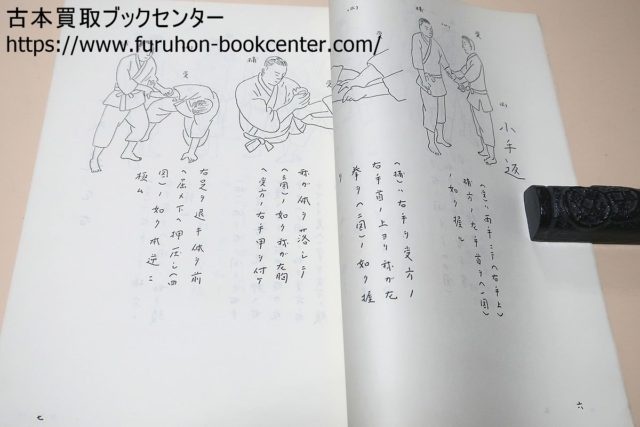 古本買取ブックセンター
https://www.furuhon-bookcenter.com/
小手返
受
(一)
捕
(二)
(受)ハ両手ニテ(右手上)
捕方ノ左手首ヲ(一図)
ノ如ク握ル
(捕)ハ右手ヲ受方ノ
右手首ノ上ヨリ我が左
拳ヲ(二図)ノ如ク握
リ
六
捕
受
受
我が体ヲ落シニ
(三図)ノ如ク我が左胸
ヘ受方ノ右手甲ヲ付ケ
右足ヲ退キ体ヲ前
ヘ屈メ下ヘ押圧シ(四
図)ノ如ク逆ニ
極ム
七